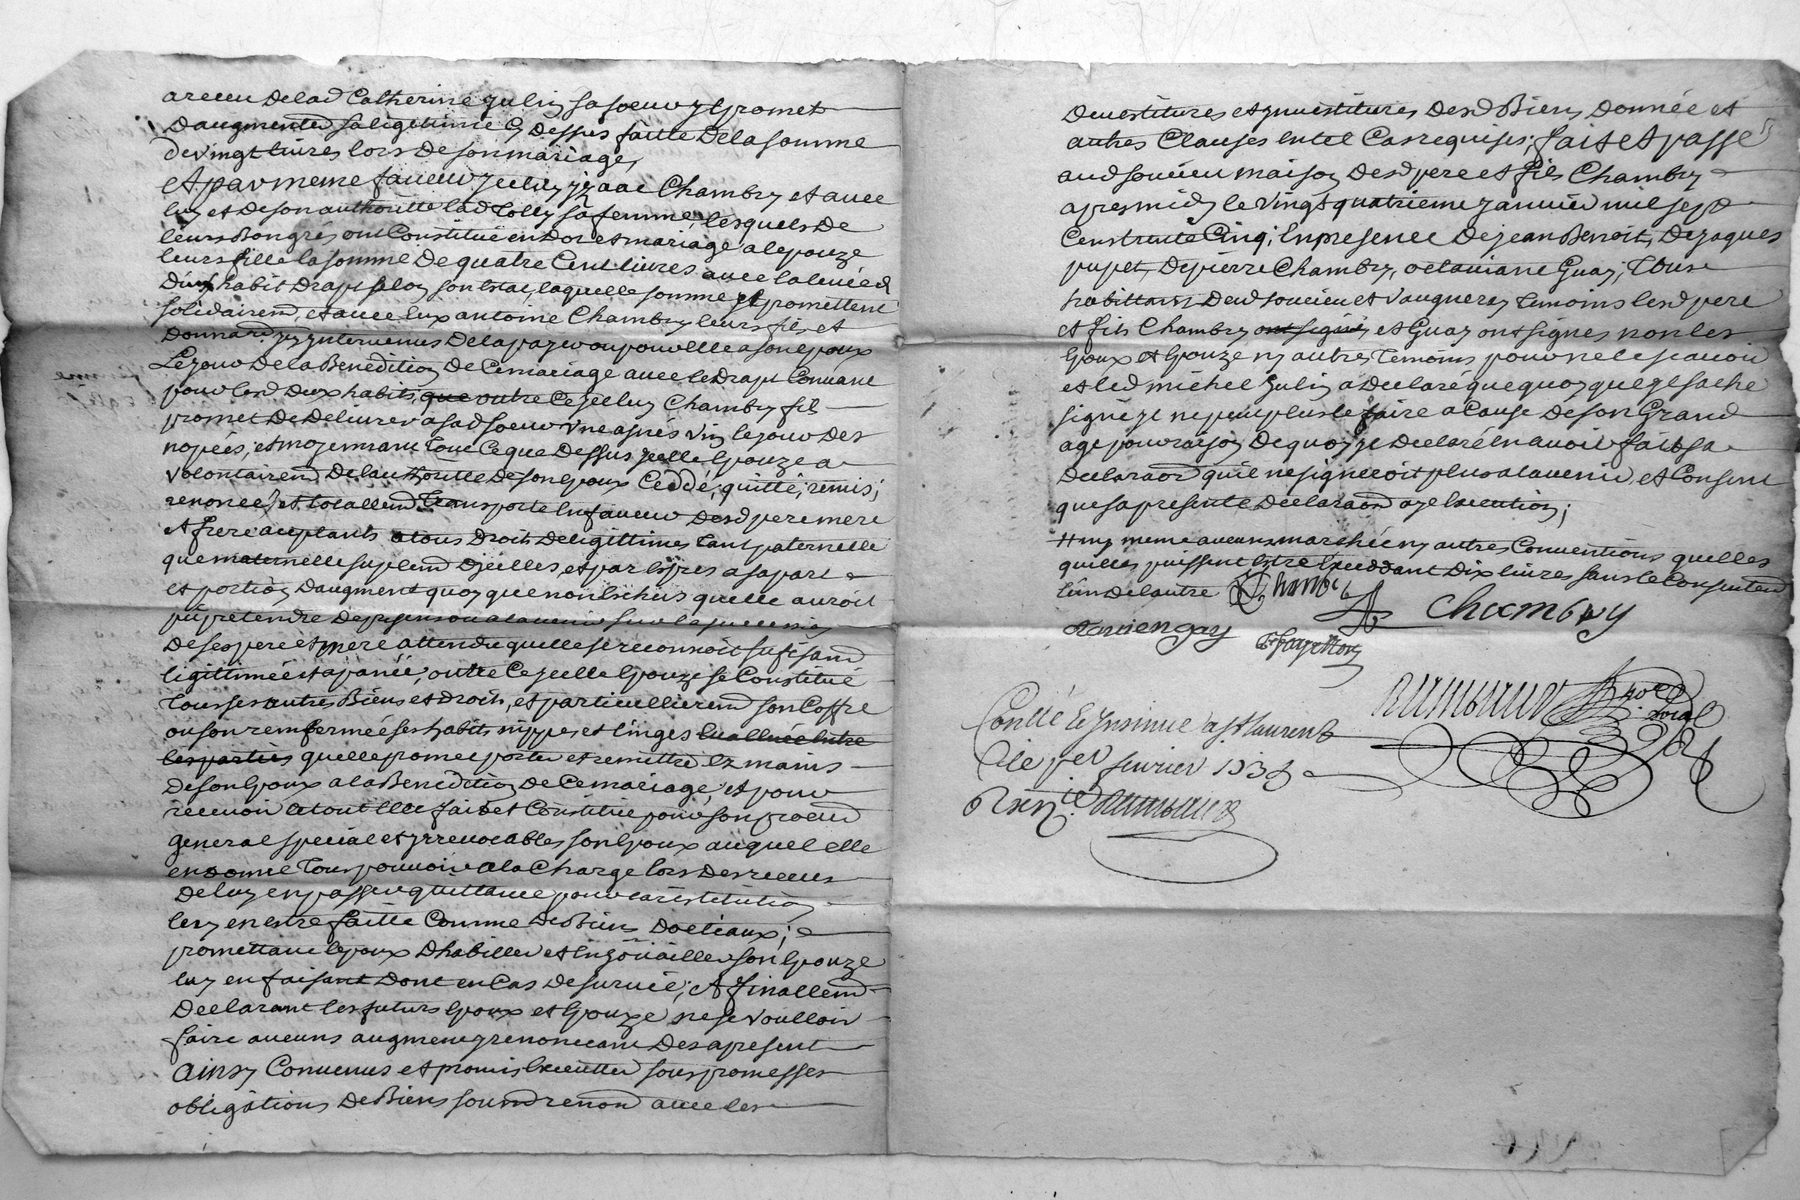 a receu delad Catherine Jullin sa soeur yl promet
d'augmenter sa ligittimie cy dessus faitte de la somme
de vingt livres lors de son mariage,
et par meme faveur jceluy yzaac Chambry et avec
luy et de son authoritté lad Tolly sa femme, lesquels de
leurs bongrés ont Constitué en Dot et mariage a lepouze
leurs fille la somme de quatre Cent livres avec la levée d
deux habit drapt selon son Etat, laquelle somme yl promettent
solidairemt, et avec Eux antoine Chambry leurs fils et
intervenus de la payer ou pour Elle a son Epoux
Le jour de la Benediction de Ce mariage avec le drapt Convenant
pour lesd deux habits, que outre Ce jcelluy Chambry fils
promet de delivrer a sad soeur une asnée vin le jour des
nopces, et moyennant Tout Ce que dessus jcelle Epouze a
volontairemt de lauthoritte de son Epoux Ceddé, quitté, remis,
renoncé, et totallemt Transporté En faveur desd pere mere
et frere acceptants a tous droits de ligittimes Tant paternelle
que maternelle suplemt d'jcelles, et par Exprès a sa part
et portion daugment quoy que non Echeus quelle auroit
pu pretendre de present ou a lavenir sur la succession
de ses pere et mere attendu quelle se reconnoit sufisamt
ligittimée et apanée, outre Ce jcelle Epouze se Constitue
Tous ses autres Biens et droits, et particullieremt son Coffre
ou son renfermée ses habits nippes et linges Evallués Entre
les parties quelle promet porter et remettre Ez mains
de son Epoux a la Benediction de Ce mariage, et pour
recevoir le tout Elle fait et Constitue pour son procur
general special et jrrevocables son Epoux auquel elle
en donne Tous pouvoir a la Charge lors des receus
de luy en passer quittance pour la restitution
luy en Estre faitte Comme de Biens Dottaux;
promettant lepoux d'habiller et Enjouailler son Epouze
luy en faisant Dont en Cas de survie, et finallemt
declarant les futurs Epoux et Epouze ne se voulloir
faire aucuns augment y renonceant des a present
ainsy Convenus et promis Executter sous promesses
obligations de Biens soumd renond avec les
devestitures et jnvestitures desd Biens donnée et
autres Clauses En tel Cas requises; fait et passé
aud soucieu maison desd pere et fils Chambry
apres midy le vingt quatrieme janvier mil sept
Cens trente Cinq, En presence de jean Benoit, de jaques
pupet, de pierre Chambry, octaviane Guay, Tous
habittants dud soucieu et vaugneray temoins lesd pere
et fils Chambry ont signé, et Guay ont signés non les
Epoux et Epouze ny autres temoins pour ne le scavoir
et led michel Jullin a declaré que quoy que yl sache
signé yl ne peut plus le faire a Cause de son Grand
age pour raison de quoy yl declaré En avoir fait sa
declaraon quil ne signeroit plus a lavenir, et Consent
que sa presente declaraon aye Execution;
ny meme aucuns marchée ny autres Conventions quelles
quelles puissent Estre Exceddant dix livres sans le Consentemt
lun de lautre Chambry Chambry
Raimbaud
Conllé & Jnsinué a St Laurent
le 1er fevrier 1735
Raimbaud